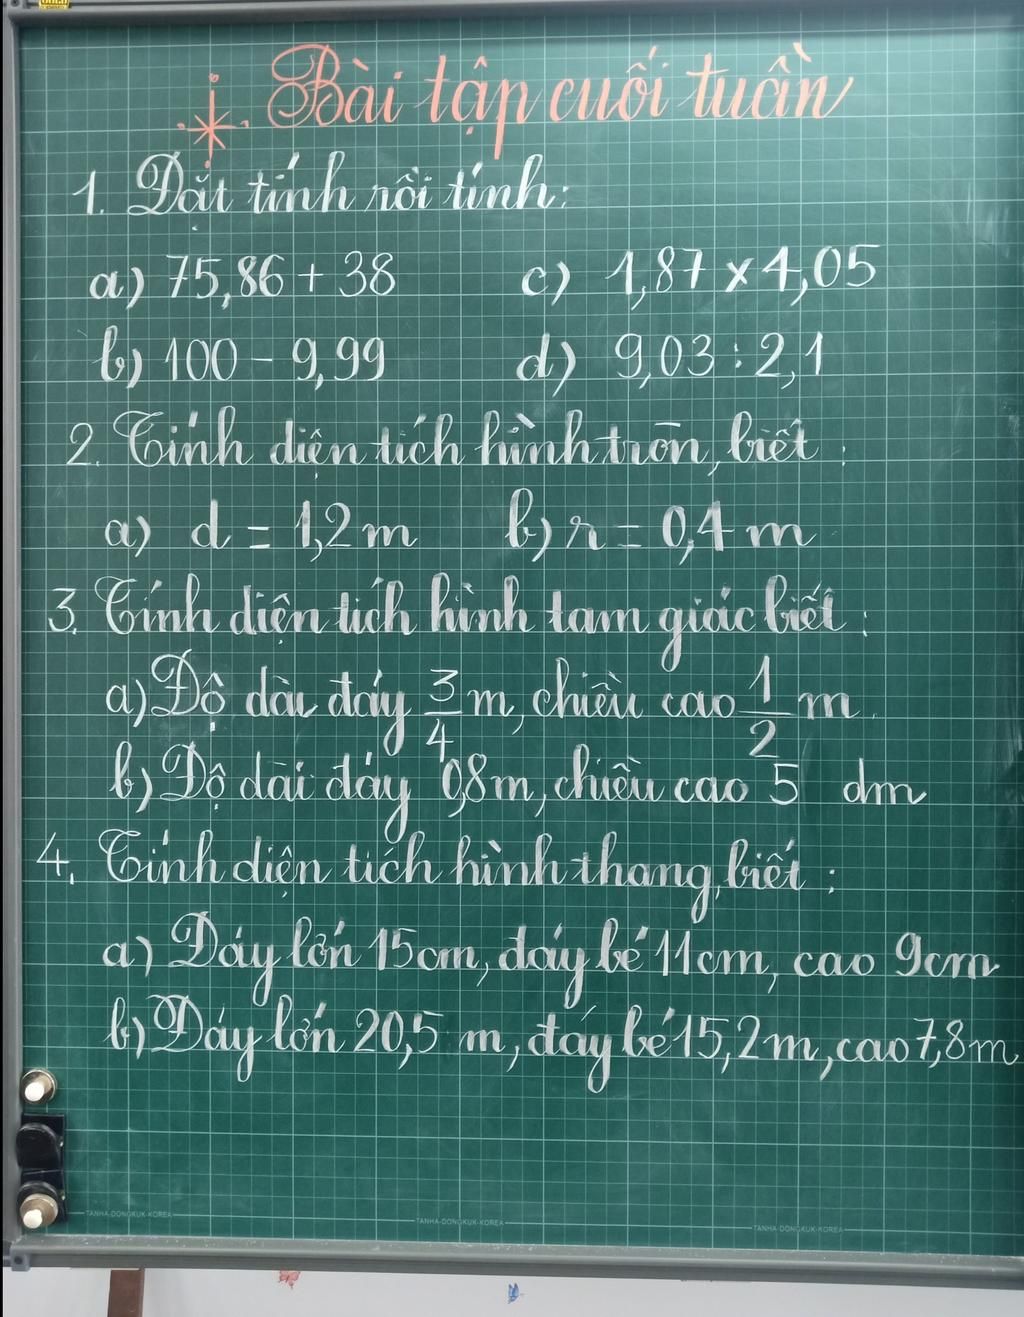 Bài tập cuối tuần
1. Đặt tính rồi tính:
a) 75,86 + 38 c) 1,87 x 4,05
b) 100 - 9,99 d) 9,03 : 2,1
2. Tính diện tích hình tròn, biết :
a) d = 1,2 m b) r = 0,4 m
3. Tính diện tích hình tam giác biết :
a) Độ dài đáy 3/4 m, chiều cao 1/2 m.
b) Độ dài đáy 0,8 m, chiều cao 5 dm
4. Tính diện tích hình thang, biết :
a) Đáy lớn 15cm, đáy bé 11cm, cao 9cm
b) Đáy lớn 20,5 m, đáy bé 15,2m, cao 7,8m
TANHA-DONGKUK-KOREA TANHA-DONGKUK-KOREA TANHA-DONGKUK-KOREA